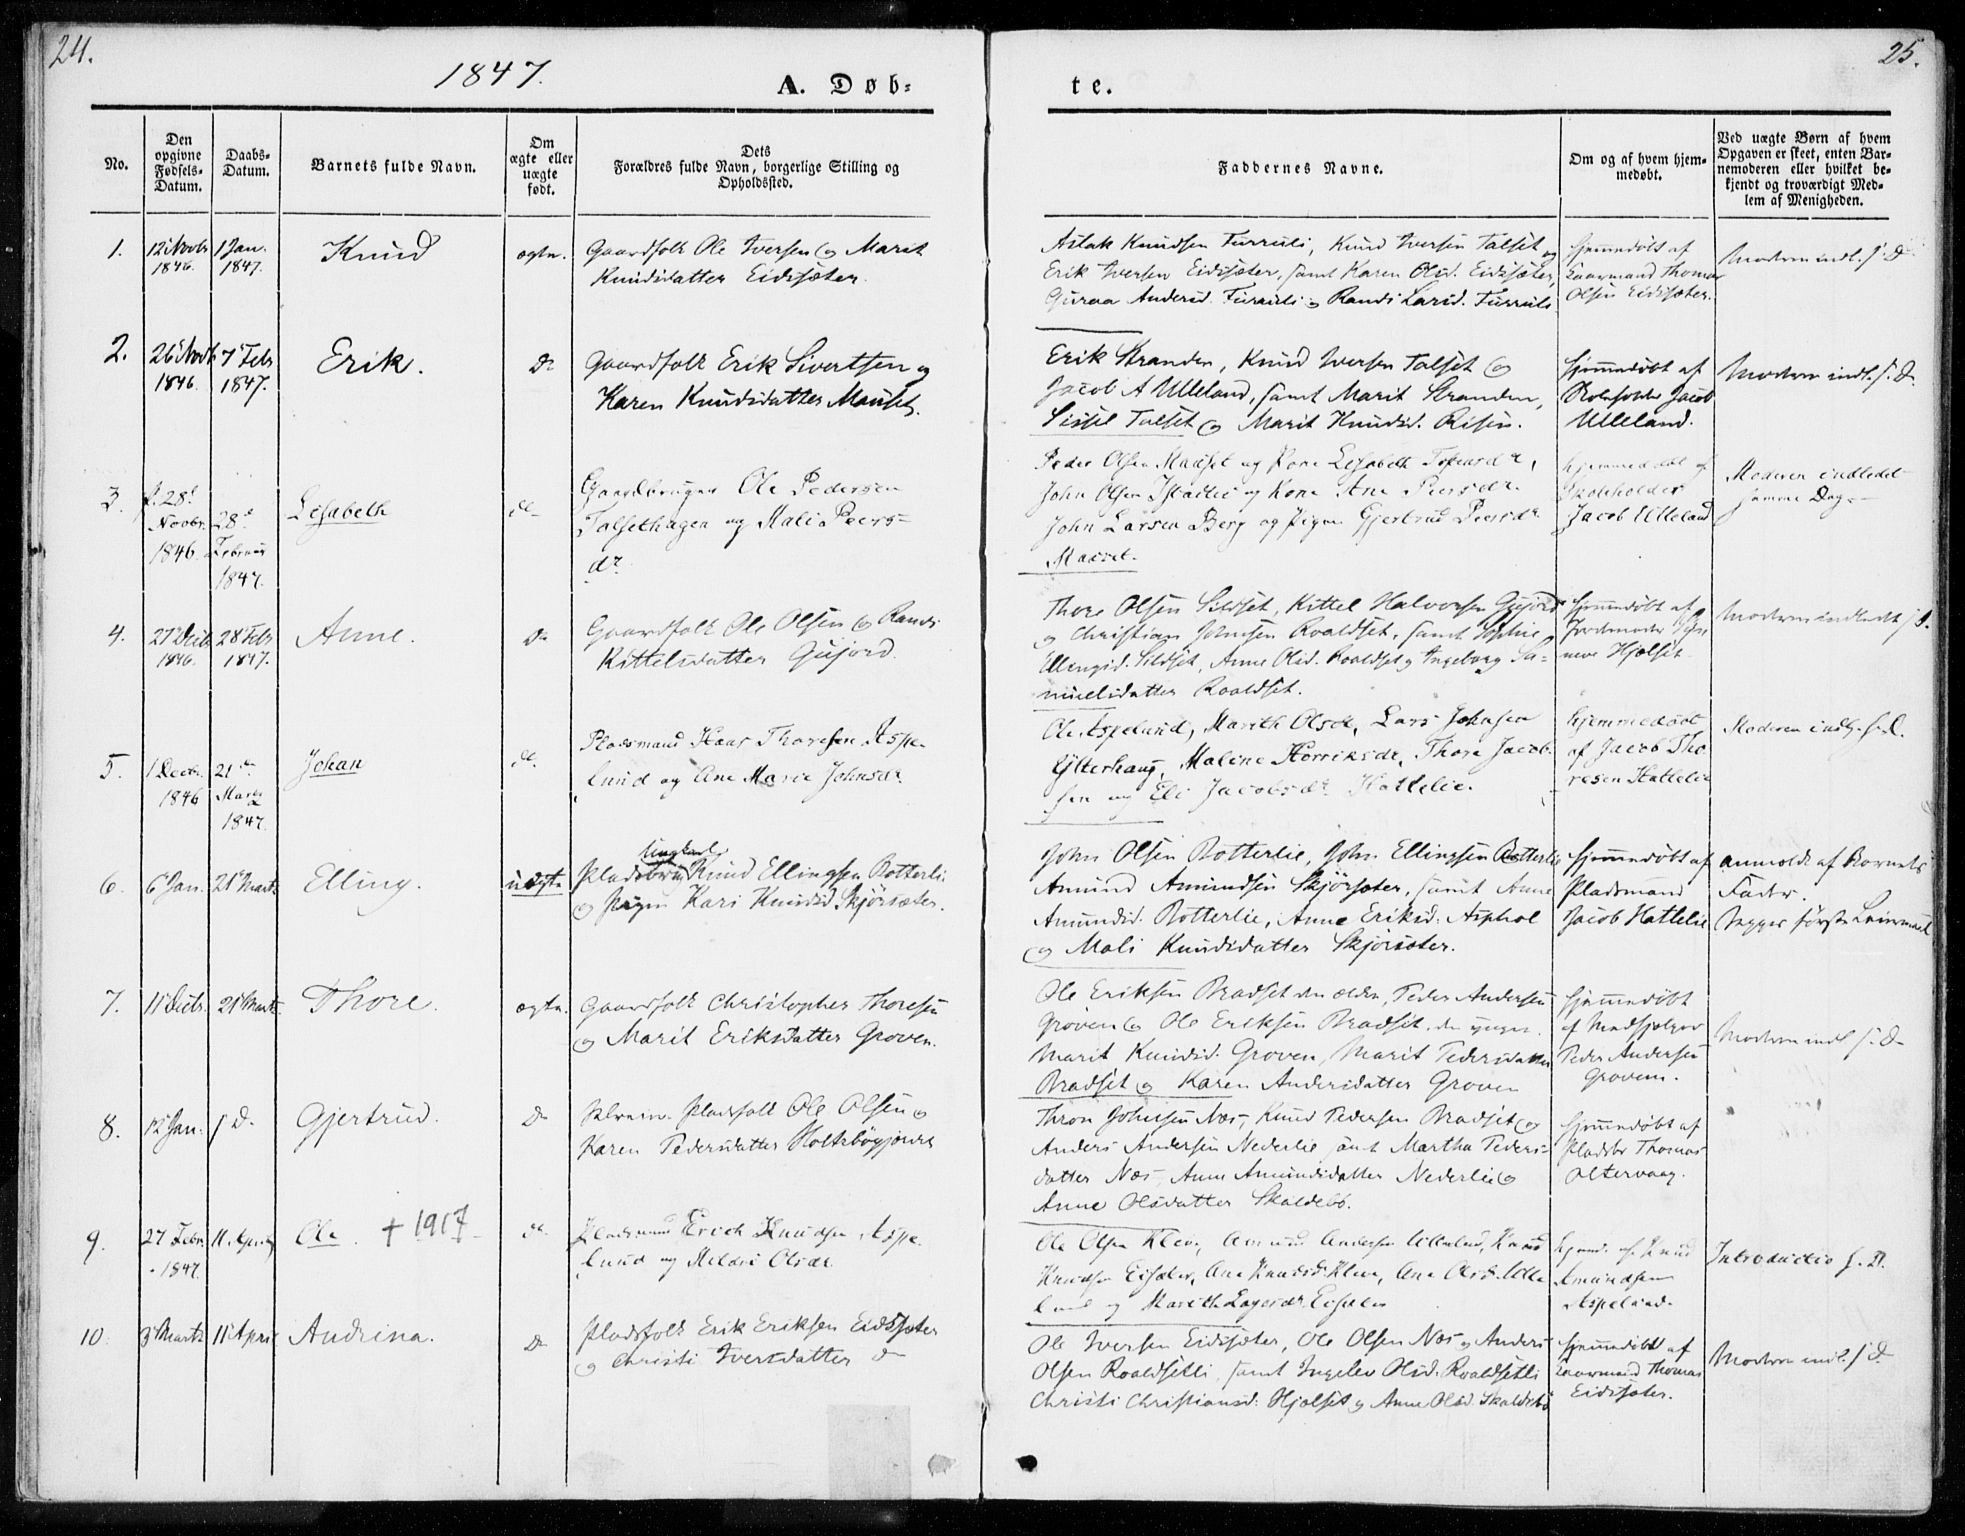 24.
25.
1847.
A. Døb-
te.
No.
Den
opgivne
Fødsels-
Datum.
Daabs-
Datum.
Barnets fulde Navn.
Om
ægte eller
uægte
født.
Dets
Forældres fulde Navn, borgerlige Stilling og
Opholdssted.
Faddernes Navne.
Om og af hvem hjem-
medøbt.
Ved uægte Børn af hvem
Opgaven er skeet, enten Bar-
nemoderen eller hvilket be-
kjendt og troværdigt Med-
lem af Menigheden.
1.
12 Novbr
1846.
1 Jan.
1847.
Knud
ægte.
Gaardfolk Ole Iversen og Marit
Knudsdatter Eidssæter.
Aslak Knudsen Furruli, Knud Iversen Talset og
Erik Iversen Eidssæter, samt Karen Olsd. Eidssæter,
Guroa Andersd. Furruli og Randi Larsd. Furruli
hjemmedøbt af
Thomas
Olsen Eidssæter.
Moderen indl. s. D.
2.
26 Novb
1846.
7 Febr
1847.
Erik.
Do
Gaardfolk Erik Sivertsen og
Karen Knudsdatter Mauset.
Erik Stranden, Knud Iversen Talset og
Jacob A Ulleland, samt Marit Stranden,
Sissel Talset og Marit Knudsd. Risen.
hjemmedøbt af
Skoleholder Jacob
Ulleland.
Moderen indl. s. D.
3.
f. 28de
Novbr.
1846
28de
Februar
1847.
Lisabeth
do
Gaardbruger Ole Pedersen
Talsethagen og Mali Peers-
dr
Peder Olsen Mauset og Kone Lisabeth
John Olsen og Kone Ane Peersdr
John Larsen Berg og Pigen Gjertrud Peersdr
Mauset.
hjemmedøbt af
Skoleholder
Jacob Ulleland
Moderen indledet
samme Dag.
4.
27 Decb
1846.
28 Febr
1847.
Anne.
Do
Gaardfolk Ole Olsen og Randi
Kittelsdatter Gujord.
Thore Olsen Sildset, Kittel Halvorsen Gujord
og Christian Johnsen Roaldset, samt Sophie
Ellingsd. Sildset, Anne Olsd. Roaldset og Ingeborg Sa-
muelsdatter Roaldset.
hjemmedøbt af
Jordmoder
Hjelset
Moderen indledt s. D.
5.
1 Decbr.
1846
21de
Marts
1847.
Johan
do
Pladsmand Hans Thoresen Aspe-
lund og Ane Marie Johnsdr
Ole Aspelund, Marith Olsdr, Lars Johnsen
Ytterhaug, Malene, Thore Jacob-
sen og Eli Jacobsdr Hattelie.
hjemmedøbt
af Jacob Tho-
resen Hattelie
Moderen indl. s. D.
6.
6 Jan.
21 Marts
Elling.
uægte
Ungkarl
Knud Ellingsen Botterli
og Pigen Kari Knudsd Skjørsæter.
John Olsen Botterlie, John Ellingsen Botterlie
Amund Amundsen Skjørsæter, samt Anne
Amundsd. Botterlie, Anne Eriksd. Asphol
og Mali Knudsdatter Skjørsæter.
hjemmedøbt af
Pladsmand
Jacob Hattelie
anmeldt af Barnets
Fader.
Begges første Leiermaal
7.
11 Decbr.
21 Marts.
Thore.
ægte.
Gaardfolk Christopher Thoresen
og Marit Eriksdatter Groven.
Ole Eriksen Bradset den ældre, Peder Andersen
Groven og Ole Eriksen Bradset, den yngre.
Marit Knudsd. Groven, Marit Pedersdatter
Bradset og Karen Andersdatter Groven
hjemmedøbt
af Medhjelper
Peder Andersen
Groven.
Moderen indl s. D
8.
12 Jan.
s D.
Gjertrud.
Do
Pladsfolk Ole Olsen og
Karen Pedersdatter
Thron Johnsen Næs, Knud Pedersen Bradset og
Anders Andersen Nederlie samt Martha Peders-
datter Næs, Anne Amundsdatter Nederlie og
Anne Olsdatter Skaldebø.
hjemmedøbt af
Thomas
Oltervaag.
9.
27 Febr.
1847.
11 April
Ole. + 1917
do
Pladsmand Erich Knudsen Aspe-
lund og Olsdr
Ole Olsen Kleve, Amund Andersen Ulleland, Knud
Knudsen Eisæter, Ane Knudsdr Kleve, Ane Olsdr Ulle-
land og Marith Eisæter
hjemd. af Knud
Amundsen
Aspelund.
Introductio s. D.
10.
3 Marts
11 April
Andrina.
Do
Pladsfolk Erik Eriksen Eidssæter
og Christi Iversdatter Do
Ole Iversen Eidssæter, Ole Olsen Næs og Anders
Olsen Roaldsetli, samt Ingelev Olsd. Roaldsetli
Christi Christiansd. Hjelset og Anne Olsd. Skaldebø
hjemmedøbt af
Thomas
Eidssæter.
Moderen indl. s D.